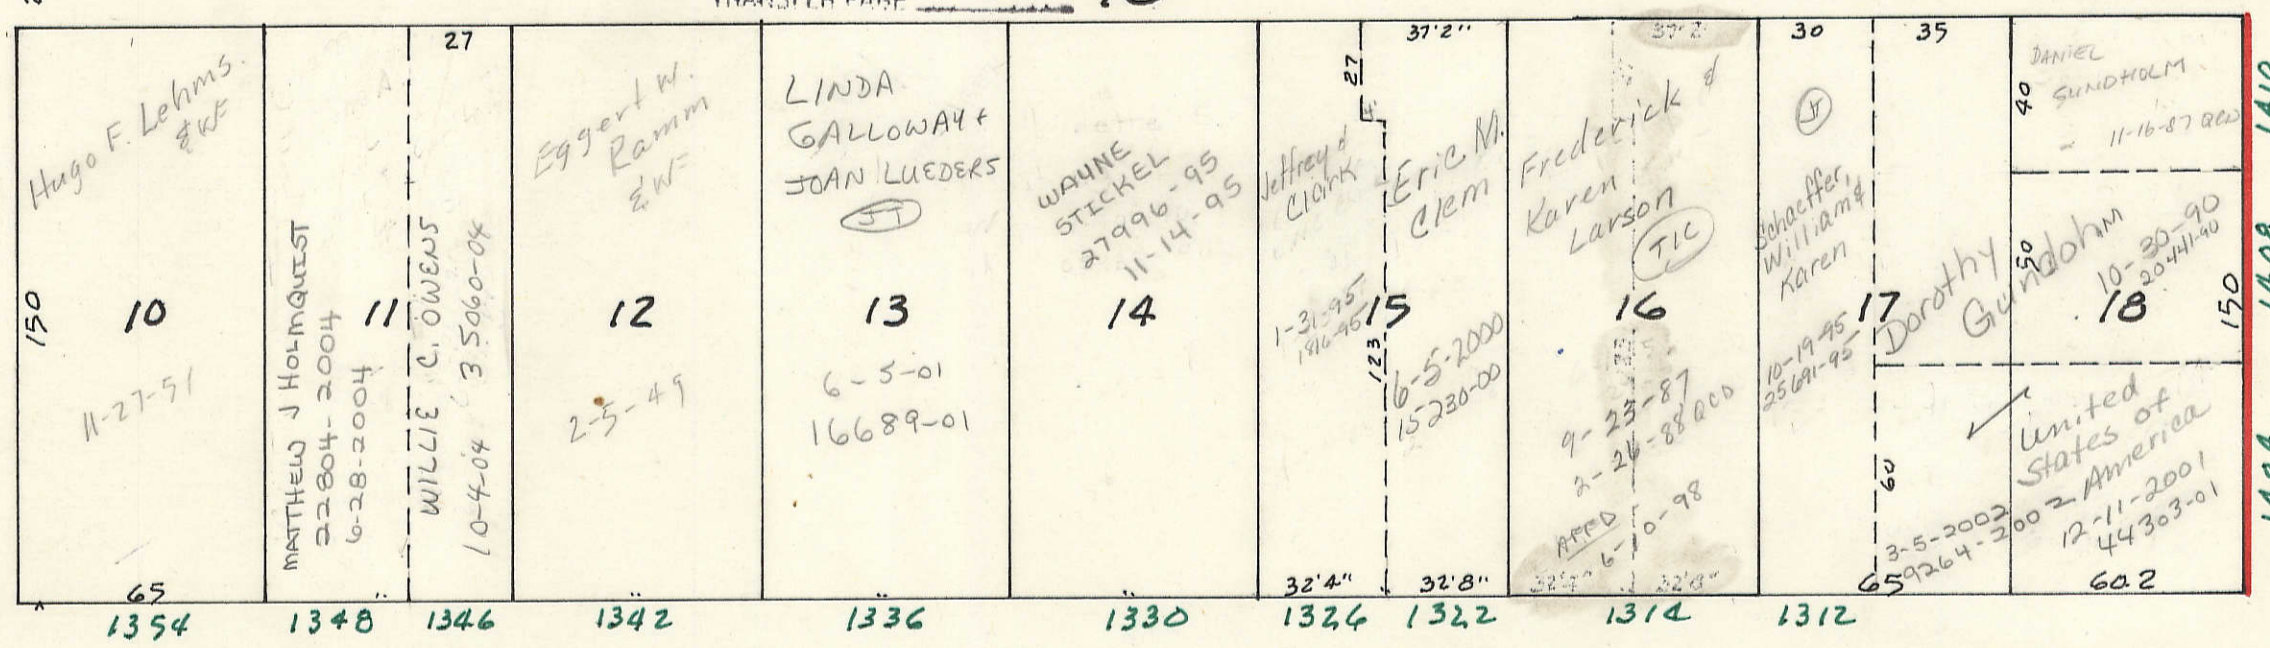 TRANSFER PAGE
10
Hugo F. Lehms.
& WF
150
10
11-27-51
65
1354
27
MATTHEW J HOLMQUIST
22804-2004
6-28-2004
11
WILLIE C. OWENS
10-4-04 35060-04
1348
1346
Eggert W.
Ramm
& WF
12
2-5-49
1342
LINDA
GALLOWAY +
JOAN LUEDERS
JT
13
6-5-01
16689-01
1336
WAYNE
STICKEL
27996-95
11-14-95
14
1330
27
37'2"
Jeffrey d
Clark
1-31-95
1816-95
15
123
Eric M.
Clem
6-5-2000
15230-00
32'4"
32'8"
1326
1322
37'2"
Frederick &
Karen
Larson
TIC
16
9-23-87
2-26-88 QCD
AFFD
6-10-98
32'4"
32'8"
1314
30
35
Schaeffer,
William &
Karen
10-19-95
25691-95
17
60
65
1312
DANIEL
SUNDHOLM
11-16-87 QCD
40
50
Dorothy
Gundohm
10-30-90
20441-90
18
150
United
States of
America
12-11-2001
44303-01
3-5-2002
9264-2002
60.2
1410
1408
1404